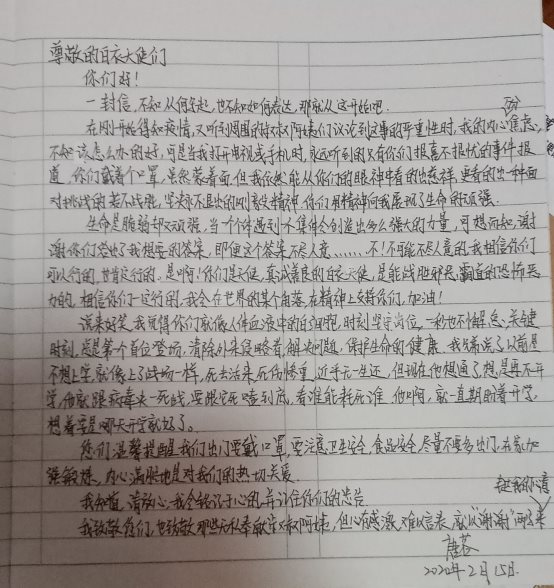 尊敬的白衣天使们
你们好！
一封信，不知从何写起，也不知如何表达，那就从这开始吧。
在刚开始得知疫情，又听到周围的叔叔阿姨们议论到这事的严重性时，我的内心焦虑，万分
不知该怎么办的好，可是当我打开电视或手机时，永远听到的只有你们报喜不报忧的事件报
道，你们戴着口罩，虽然蒙着面，但我依然能从你们的眼神中看的出慈祥，更看的出一种面
对挑战的若不战胜，坚决不退出的刚毅精神，你们用精神向我展现了生命的顽强。
生命是脆弱却又顽强，当一个个体遇到不集体会创造出多么强大的力量，可想而知，谢
谢你们给出了我想要的答案，即便这个答案不尽人意……不！不可能不尽人意的，我相信你们
可以行的，也肯定行的。是啊！你们是天使，真诚善良的白衣天使，是能战胜邪恶霸道的恐怖恶
力的，相信你们一定行的，我会在世界的某个角落，在精神上支持你们，加油！
说来好笑，我觉得你们就像人体血液中的白细胞，时刻坚守岗位，一秒也不懈怠，关键
时刻，总是第个首位登场，清除外来侵略者，解决问题，保护生命的健康。我弟弟说了以前是
不想上学，就像上了战场一样，死去活来，死伤惨重，近乎九生还，但现在他想通了，想是再不开
学，他就跟病毒决一死战，要跟它死嗑到底，看谁能耗死谁。他啊，就一直期盼着开学，
想着学校哪天开学就好了。
您们温馨提醒我们出门要戴口罩，要注意卫生安全，食品安全，尽量不要多出门，在家加
强锻炼，内心满眼地是对我们的热切关爱。
我知道，请放心，我会铭记于心的，并记住你们的忠告
我致敬你们，也致敬那些无私奉献的叔叔阿姨，但心有感激，难以言表，就以“谢谢”两字来
表我的情
唐蓉
2020年2月15日.